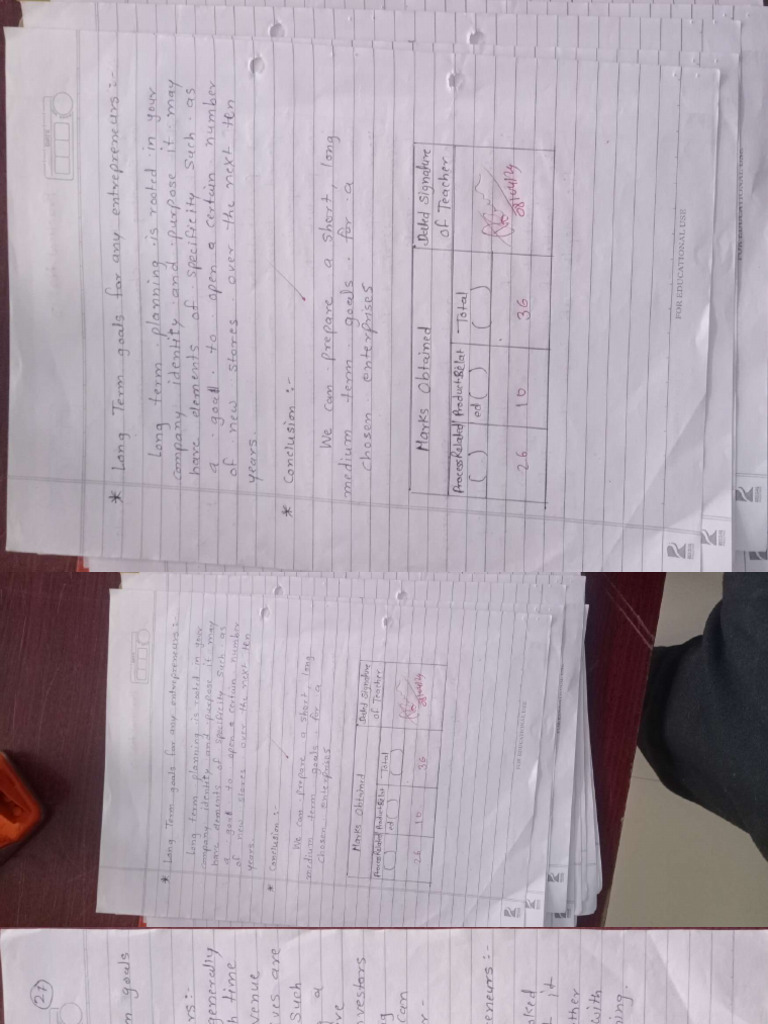 * Long Term goals for any entrepreneurs:-
Long term planning is rooted in your
company identity and purpose it may
have elements of specificity such as
a goal to open a certain number
of new stores over the next ten
years.
* Conclusion :-
We can prepare a short, long
medium term goals for a
chosen enterprises
Marks Obtained
Dated Signature
of Teacher
Process Related
( )
Product Relat
ed ( )
Total
( )
26
10
36
28/04/24
FOR EDUCATIONAL USE
FOR EDUCATIONAL USE
* Long Term goals for any entrepreneurs:-
Long term planning is rooted in your
company identity and purpose it may
have elements of specificity such as
a goal to open a certain number
of new stores over the next ten
years
* Conclusion :-
We can prepare a short, long
medium term goals for a
chosen enterprises
Marks Obtained
Dated Signature
of Teacher
Process Related
( )
Product Relat
ed ( )
Total
( )
26
10
36
FOR EDUCATIONAL USE
(27)
m goals
rs:-
generally
h time
venue
ives are
such
a
re
vestors
g
can
r-
eneurs:-
oked
t it
ther
with
ning.